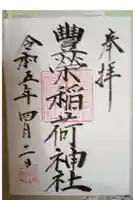 奉拝
豐栄稲荷神社
令和五年四月二日